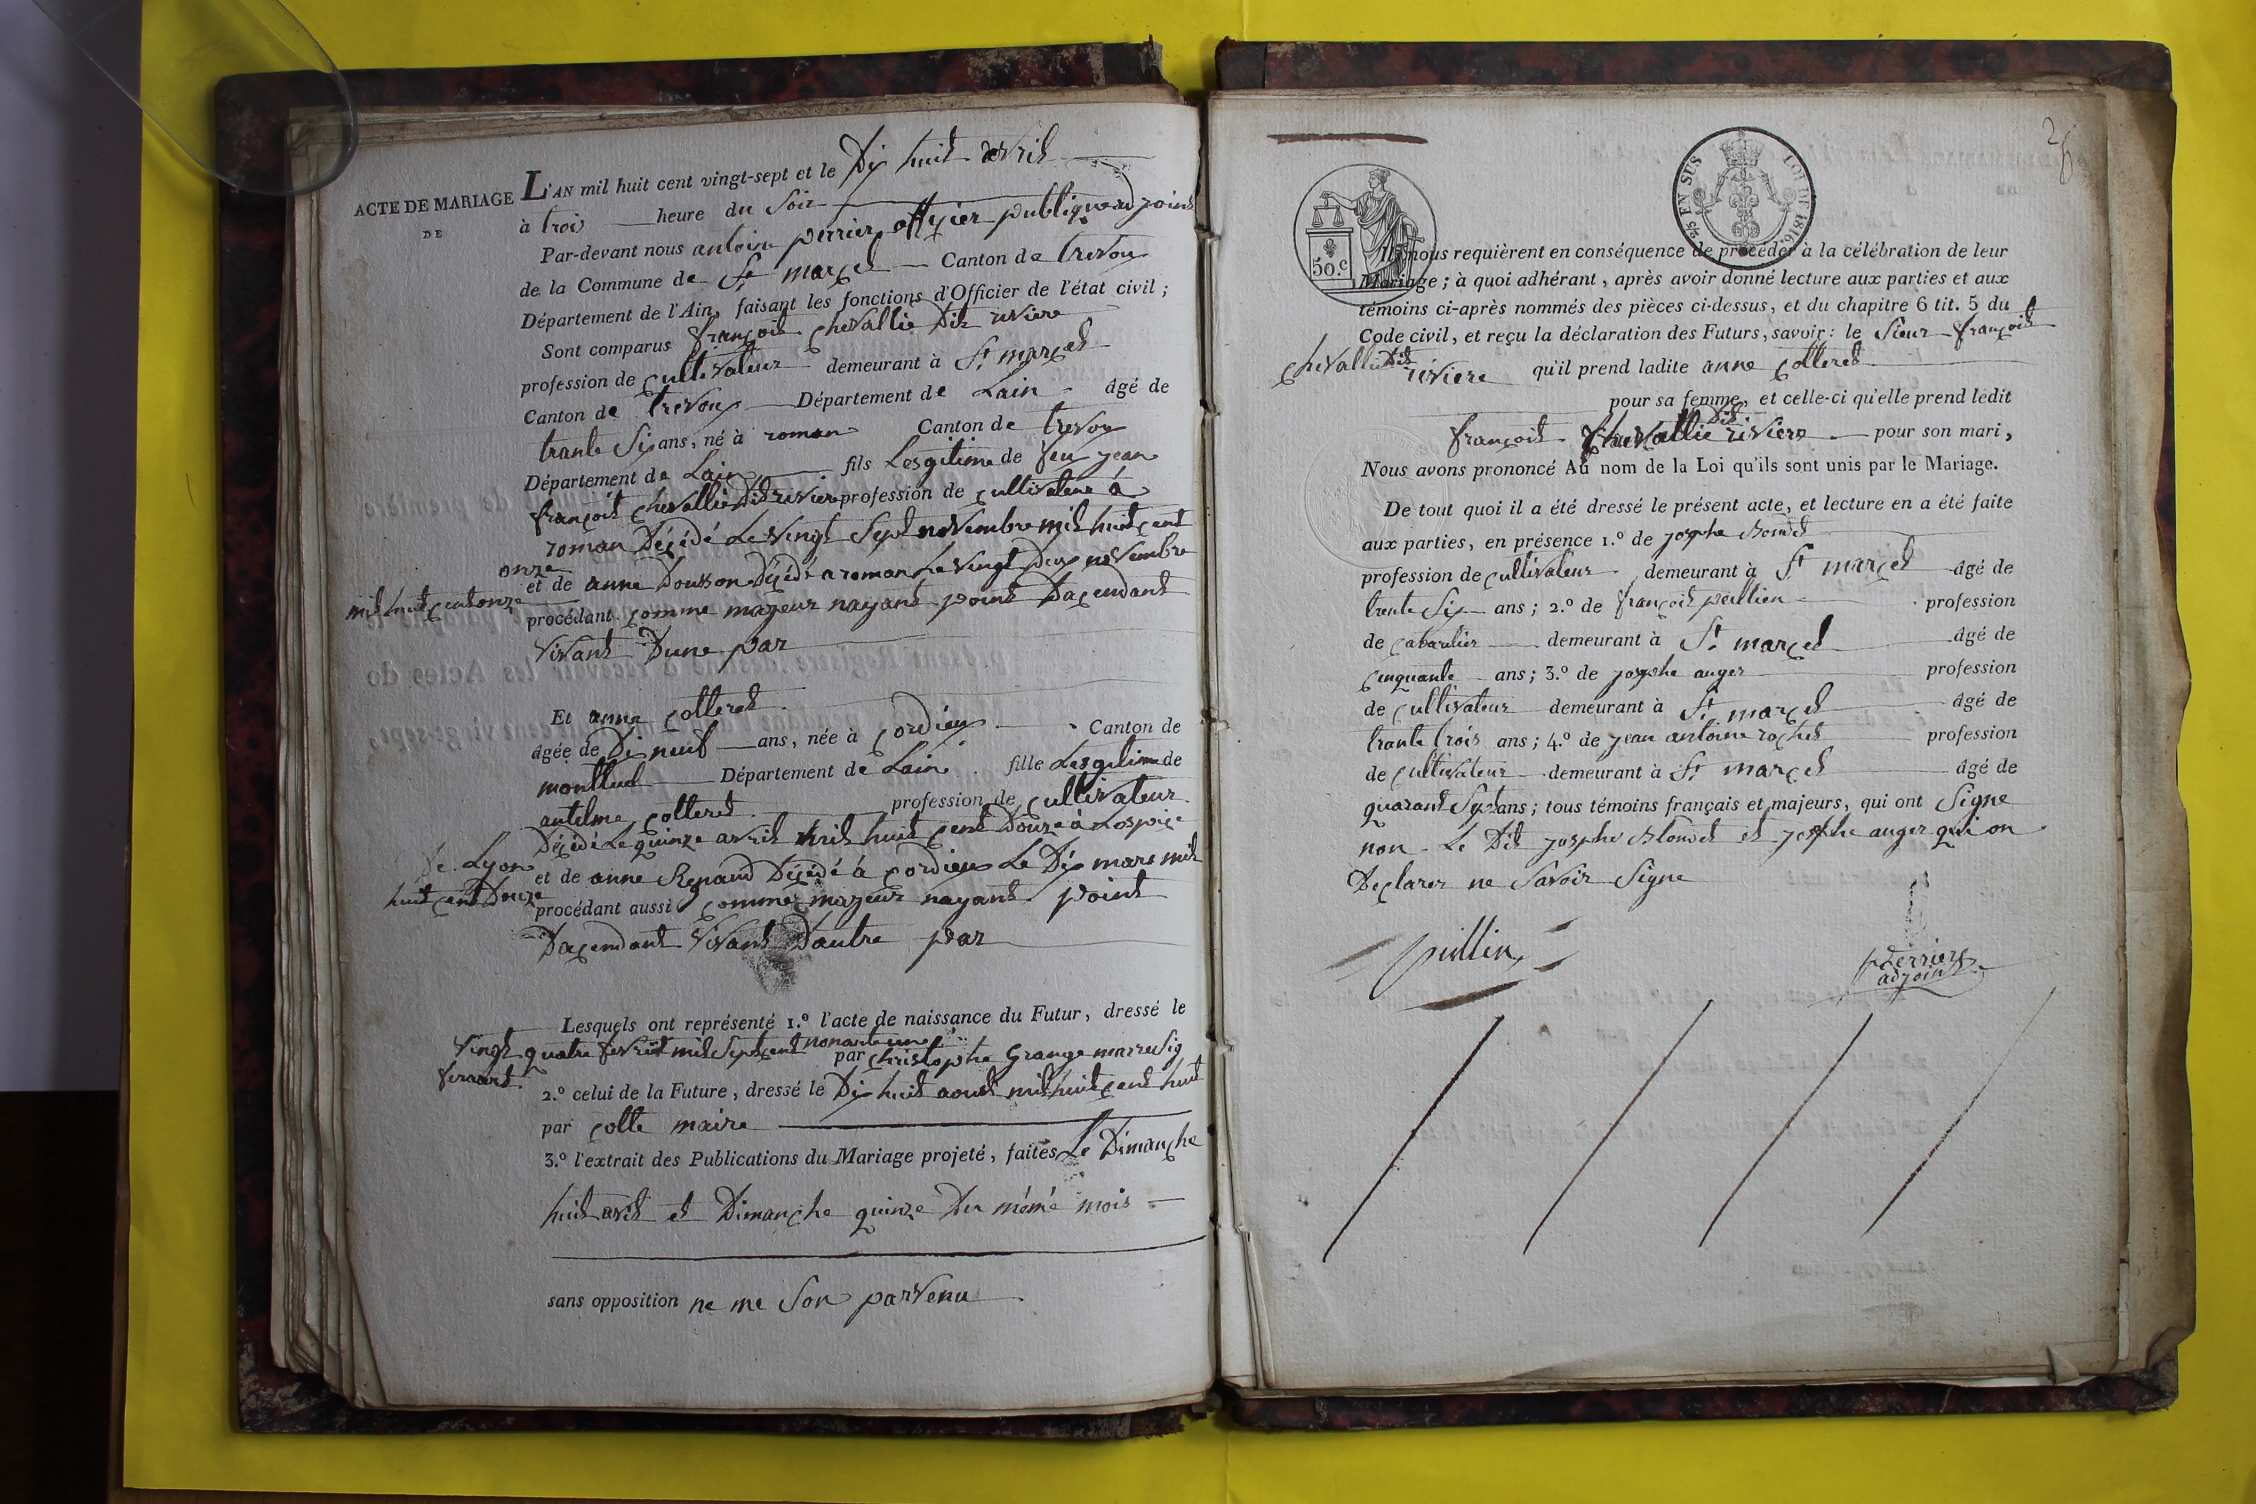 ACTE DE MARIAGE
DE
L'AN mil huit cent vingt-sept et le Dix huit avril
à trois heure du Soir
Par-devant nous antoine perrier offycier publique adjoint
de la Commune de St marcel Canton de trevoux
Département de l'Ain, faisant les fonctions d'Officier de l'état civil;
Sont comparus françois chevallié Dit riviere
profession de cultivateur demeurant à St marcel
Canton de trevoux Département de Lain âgé de
trante Six ans, né à roman Canton de trevoux
Département de Lain fils Lesgitime de feu jean
françoit chevallié Dit riviere profession de cultivateur à
roman Décédé Le vingt Sept novembre mil huit cent
onze
et de anne Décédé a roman Le vingt Deux novembre
mil huit cent onze
procédant comme majeur nayant point Dacendant
vivant Dune par
Et anne colleret
âgée de Di neuf ans, née à cordieux Canton de
montluel Département de Lain fille Lesgitime de
antelme colleret profession de cultivateur
Décédé Le quinze avril mil huit cent Douze à Lospice
de Lyon
et de anne Renaud Décédé à cordieux Le Dix mars mil
huit cent Douze
procédant aussi comme majeur nayant point
Dacendant vivant Dautre par
Lesquels ont représenté 1.º l'acte de naissance du Futur, dressé le
vingt quatre fevrier mil Sept cent nonante une par christophe Grange maire
2.º celui de la Future, dressé le Dix huit aoust mil huit cent huit
par colle maire
3.º l'extrait des Publications du Mariage projeté, faites Le Dimanche
huit avril et Dimanche quinze Du mémé mois
sans opposition ne me Son parvenu
28
25 EN SUS LOI DE 1816.
50.c
Ils nous requièrent en conséquence de procéder à la célébration de leur
Mariage; à quoi adhérant, après avoir donné lecture aux parties et aux
témoins ci-après nommés des pièces ci-dessus, et du chapitre 6 tit. 5 du
Code civil, et reçu la déclaration des Futurs, savoir: le Sieur françoit
chevallié Dit riviere qu'il prend ladite anne colleret
pour sa femme, et celle-ci qu'elle prend lédit
françoit chevallié Dit riviere pour son mari,
Nous avons prononcé Au nom de la Loi qu'ils sont unis par le Mariage.
De tout quoi il a été dressé le présent acte, et lecture en a été faite
aux parties, en présence 1.º de josphe
profession de cultivateur demeurant à St marcel âgé de
trente Six ans; 2.º de françoit profession
de cabartier demeurant à St marcel âgé de
cinquante ans; 3.º de josphe auger profession
de cultivateur demeurant à St marcel âgé de
trante trois ans; 4.º de jean antoine rochet profession
de cultivateur demeurant à St marcel âgé de
quarant Sept ans; tous témoins français et majeurs, qui ont Signe
non Le Dit josphe Blondet et josphe auger qui on
Declarer ne Savoir Signe
perrier
adjoint